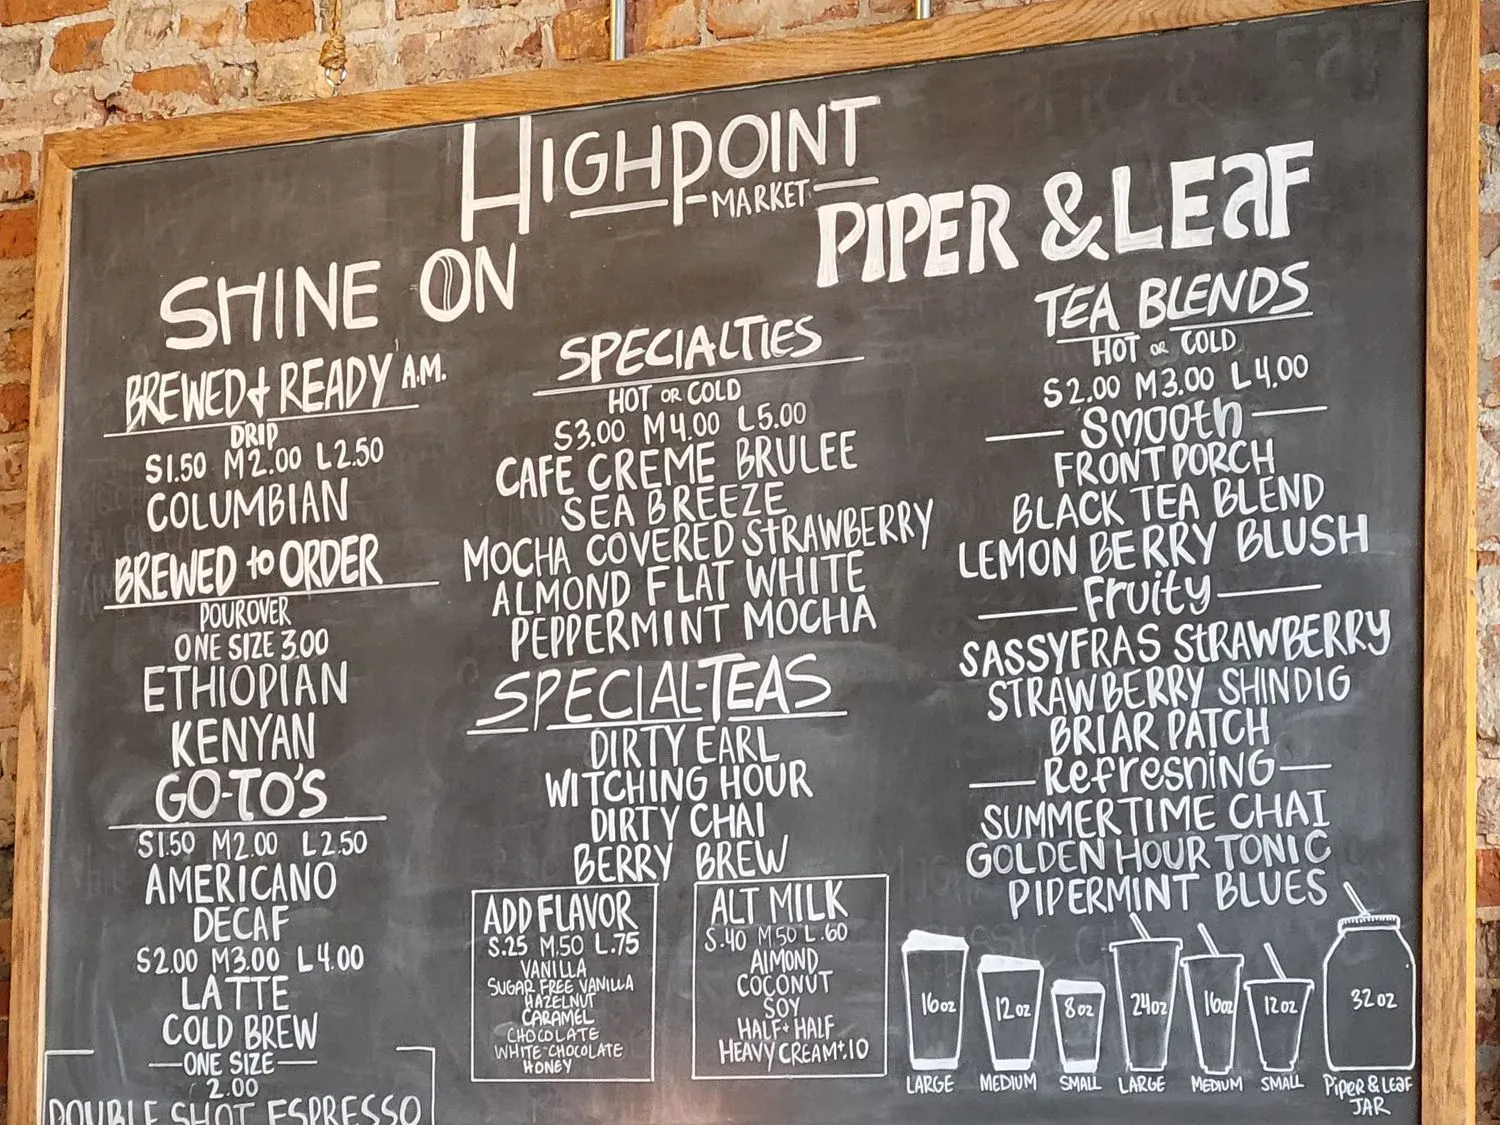 HIGHPOINT
MARKET
SHINE ON
BREWED & READY A.M.
DRIP
S1.50 M2.00 L2.50
COLUMBIAN
BREWED to ORDER
POUROVER
ONE SIZE 3.00
ETHIOPIAN
KENYAN
GO-TO'S
S1.50 M2.00 L2.50
AMERICANO
DECAF
S2.00 M3.00 L4.00
LATTE
COLD BREW
ONE SIZE
2.00
DOUBLE SHOT ESPRESSO
SPECIALTIES
HOT OR COLD
S3.00 M4.00 L5.00
CAFE CREME BRULEE
SEA BREEZE
MOCHA COVERED STRAWBERRY
ALMOND FLAT WHITE
PEPPERMINT MOCHA
SPECIAL-TEAS
DIRTY EARL
WITCHING HOUR
DIRTY CHAI
BERRY BREW
ADD FLAVOR
S.25 M.50 L.75
VANILLA
SUGAR FREE VANILLA
HAZELNUT
CARAMEL
CHOCOLATE
WHITE-CHOCOLATE
HONEY
ALT MILK
S.40 M.50 L.60
AlMOND
COCONUT
SOY
HALF+HALF
HEAVY CREAM+.10
PIPER & LEaF
TEA BLENDS
HOT OR COLD
S2.00 M3.00 L4.00
Smooth
FRONT PORCH
BLACK TEA BLEND
LEMON BERRY BLUSH
Fruity
SASSYFRAS STRAWBERRY
STRAWBERRY SHINDIG
BRIAR PATCH
RefreshiNG
SUMMERTIME CHAI
GOLDEN HOUR TONIC
PIPERMINT BLUES
16oz 12oz 8oz 24oz 16oz 12oz 32oz
LARGE MEDIUM SMALL LARGE MEDIUM SMALL PiPer & LEaF
JAR